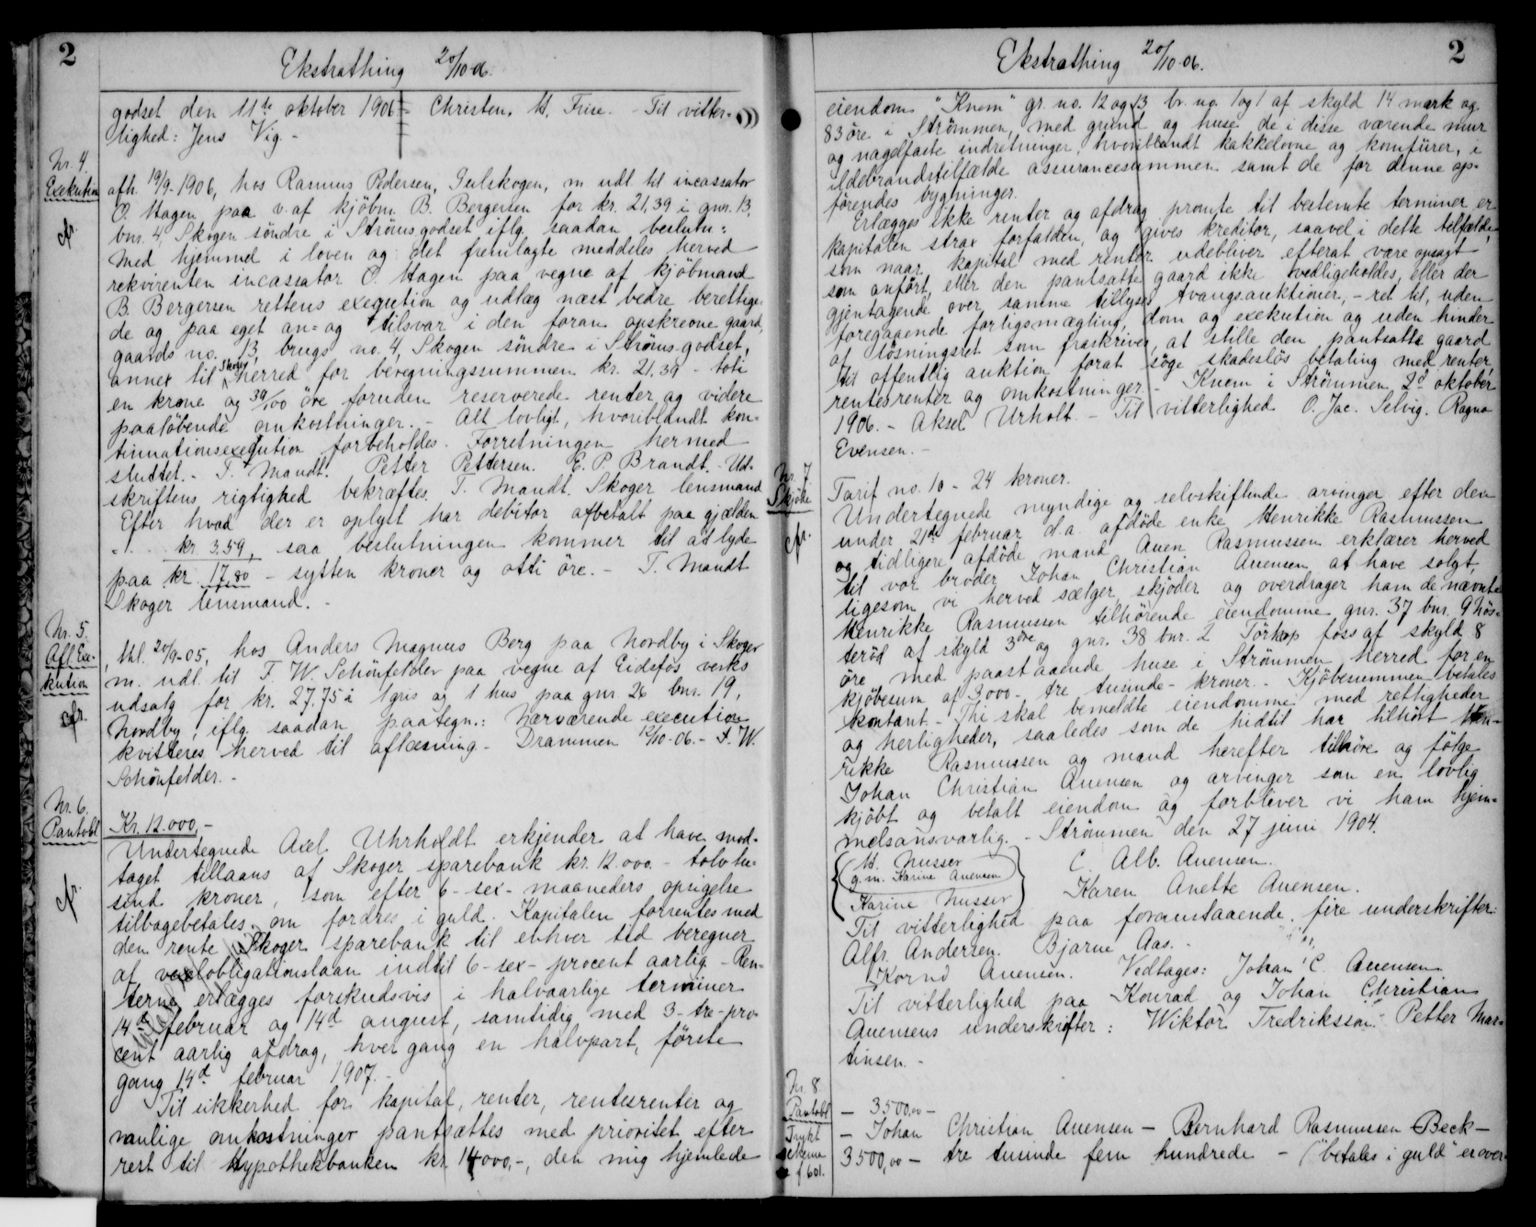 2
Ekstrathing 20/10-06.
godset den 11te oktober 1906 - Christen H. Friie. - Til vitter-
lighed: Jens Vig -
Nr. 4
Exekution
cfr.
afh. 19/9-1906, hos Rasmus Pedersen, Gulskogen, m udl. til incassator
O. Hagen paa v. af kjöbm. B. Bergersen for kr. 21,39 i gnr. 13,
bnr. 4, Skogen söndre i Strömsgodset iflg. saadan beslutn:
Med hjemmel i loven og det fremlagte meddeles herved
rekvirenten incassator O. Hagen paa vegne af kjöbmand
B. Bergersen rettens exeqution og udlæg næst bedre berettige-
de og paa eget an= og tilsvar i den foran opskrevne gaard,
gaards no. 13, brugs no. 4, Skogen söndre i Ströms-godset,
annex til Skoger herred for beregningssummen kr. 21,39 - toti
en krone og 39/100 öre foruden reserverede renter og videre
paalöbende omkostninger. - Alt lovligt, hvoriblandt kon-
tinuationsexeqution forbeholdes. Forretningen hermed
sluttet. - T. Mandt. Petter Pettersen. E. P. Brandt. - Ud-
skriftens rigtighed bekræftes. T. Mandt. Skoger lensmand
Efter hvad der er oplyst har debitor afbetalt paa gjælden
kr. 3.59, saa beslutningen kommer til at lyde
paa kr. 17,80 - sytten kroner og otti öre. - T. Mandt
Skoger lensmand. -
Nr. 5.
Afl. Exe-
kution
cfr.
, thl. 20/9-05, hos Anders Magnus Berg paa Nordby i Skoger
m. udl. til F. W. Schönfelder paa vegne af Eidsfos verks
udsalg for kr. 27.75 i 1 gris og 1 hus paa gnr. 26 bnr. 19,
Nordby, iflg. saadan paategn.: Nærværende execution
kvitteres herved til aflæsning. - Drammen 12/10-06. - F. W.
Schönfelder. -
Nr. 6.
Pantobl.
cfr.
Kr. 12.000,-
Undertegnede Axel Uhrholdt erkjender at have mod-
taget tillaans af Skoger sparebank kr. 12.000 - tolv tu-
sind kroner, som efter 6 - sex - maaneders opsigelse
tilbagebetales, om fordres i guld. Kapitalen forrentes med
den rente Skoger sparebank til enhver tid beregner
af vexelobligationslaan indtil 6 - sex - procent aarlig - Ren-
terne erlægges forskudsvis i halvaarlige terminer
14de februar og 14d august, samtidig med 3 - tre - pro-
cent aarlig afdrag, hver gang en halvpart, förste
gang 14d februar 1907. -
Til sikkerhed for kapital, renter, rentesrenter og
vanlige omkostninger pantsættes med prioritet efter
rest til Hypothekbanken kr. 14000,-, den mig hjemlede
Ekstrathing 20/10-06.
2
eiendom "Knem" gr. no. 12 og 13 br. no. 1 og 1 af skyld 14 mark og
83 öre i Strømmen, med grund og huse de i disse værende mur
og nagelfaste indretninger, hvoriblandt kakkelovne og komfürer, i
ildebrandstilfælde assurancesummen samt de for denne op-
förendes bygninger.
Erlægges ikke renter og afdrag promte til bestemte terminer er
kapitalen strax forfalden, og gives kreditor, saavel i dette tilfælde,
som naar kapital med renter udebliver efterat være opsagt
som anfört, eller den pantsatte gaard ikke vedligeholdes, eller der
gjentagende over samme tillyses tvangsauktioner, - ret til, uden
foregaaende forligsmægling, dom og exekution og uden hinder
af lösningsret som fraskrives, at stille den pantsatte gaard
til offentlig auktion forat söge skadeslös betaling med renter
rentesrenter og omkostninger. - Knem i Strømmen, 2d oktober
1906. - Aksel Urholt - Til vitterlighed O. Jac. Selvig. Ragna
Evensen. -
Nr. 7
Skjöde
cfr.
Tarif no. 10 - 24 kroner.
Undertegnede myndige og selvskiftende arvinger efter den
under 21de februar d.a. afdöde enke Henrikke Rasmussen
og tidligere afdöde mand Auen Rasmussen erklærer herved
til vor broder Johan Christian Auensen at have solgt,
ligesom vi herved sælger, skjöder og overdrager ham de nævnte
Henrikke Rasmussen tilhörende eiendomme gnr. 37 bnr. 9 Hös-
teröd af skyld 3 öre og gnr. 38 bnr. 2 Törkop foss af skyld 8
öre med paastaaende huse i Strømmen herred for en
kjöbesum af 3000 - tre tusinde - kroner. - Kjöbesummen betales
kontant. - Thi skal bemeldte eiendomme med rettigheder
og herligheder, saaledes som de hidtil har tilhört Hen-
rikke Rasmussen og mand herefter tilhöre og fölge
Johan Christian Auensen og arvinger som en lovlig
kjöbt og betalt eiendom og forbliver vi ham hjem-
melsansvarlig. - Strømmen den 27 juni 1904.
H. Musser
g.m. Karine Auensen
Karine Musser
C. Alb. Auensen.
Karen Anette Auensen.
Til vitterlighed paa foranstaaende fire underskrifter:
Alfr. Andersen. Bjarne Aas. -
Kornd Auensen. Vedtages: Johan C. Auensen
Til vitterlighed paa Konrad og Johan Christian
Auensens underskrifter: Wiktor Fredriksson. Petter Mar-
tinsen. -
Nr 8
Pantobl
Trykt
skema
f 601.
- 3500,00 -
- Johan Christian Auensen - Bernhard Rasmussen Beck -
3500,00 - tre tusinde fem hundrede - (betales i guld er over-